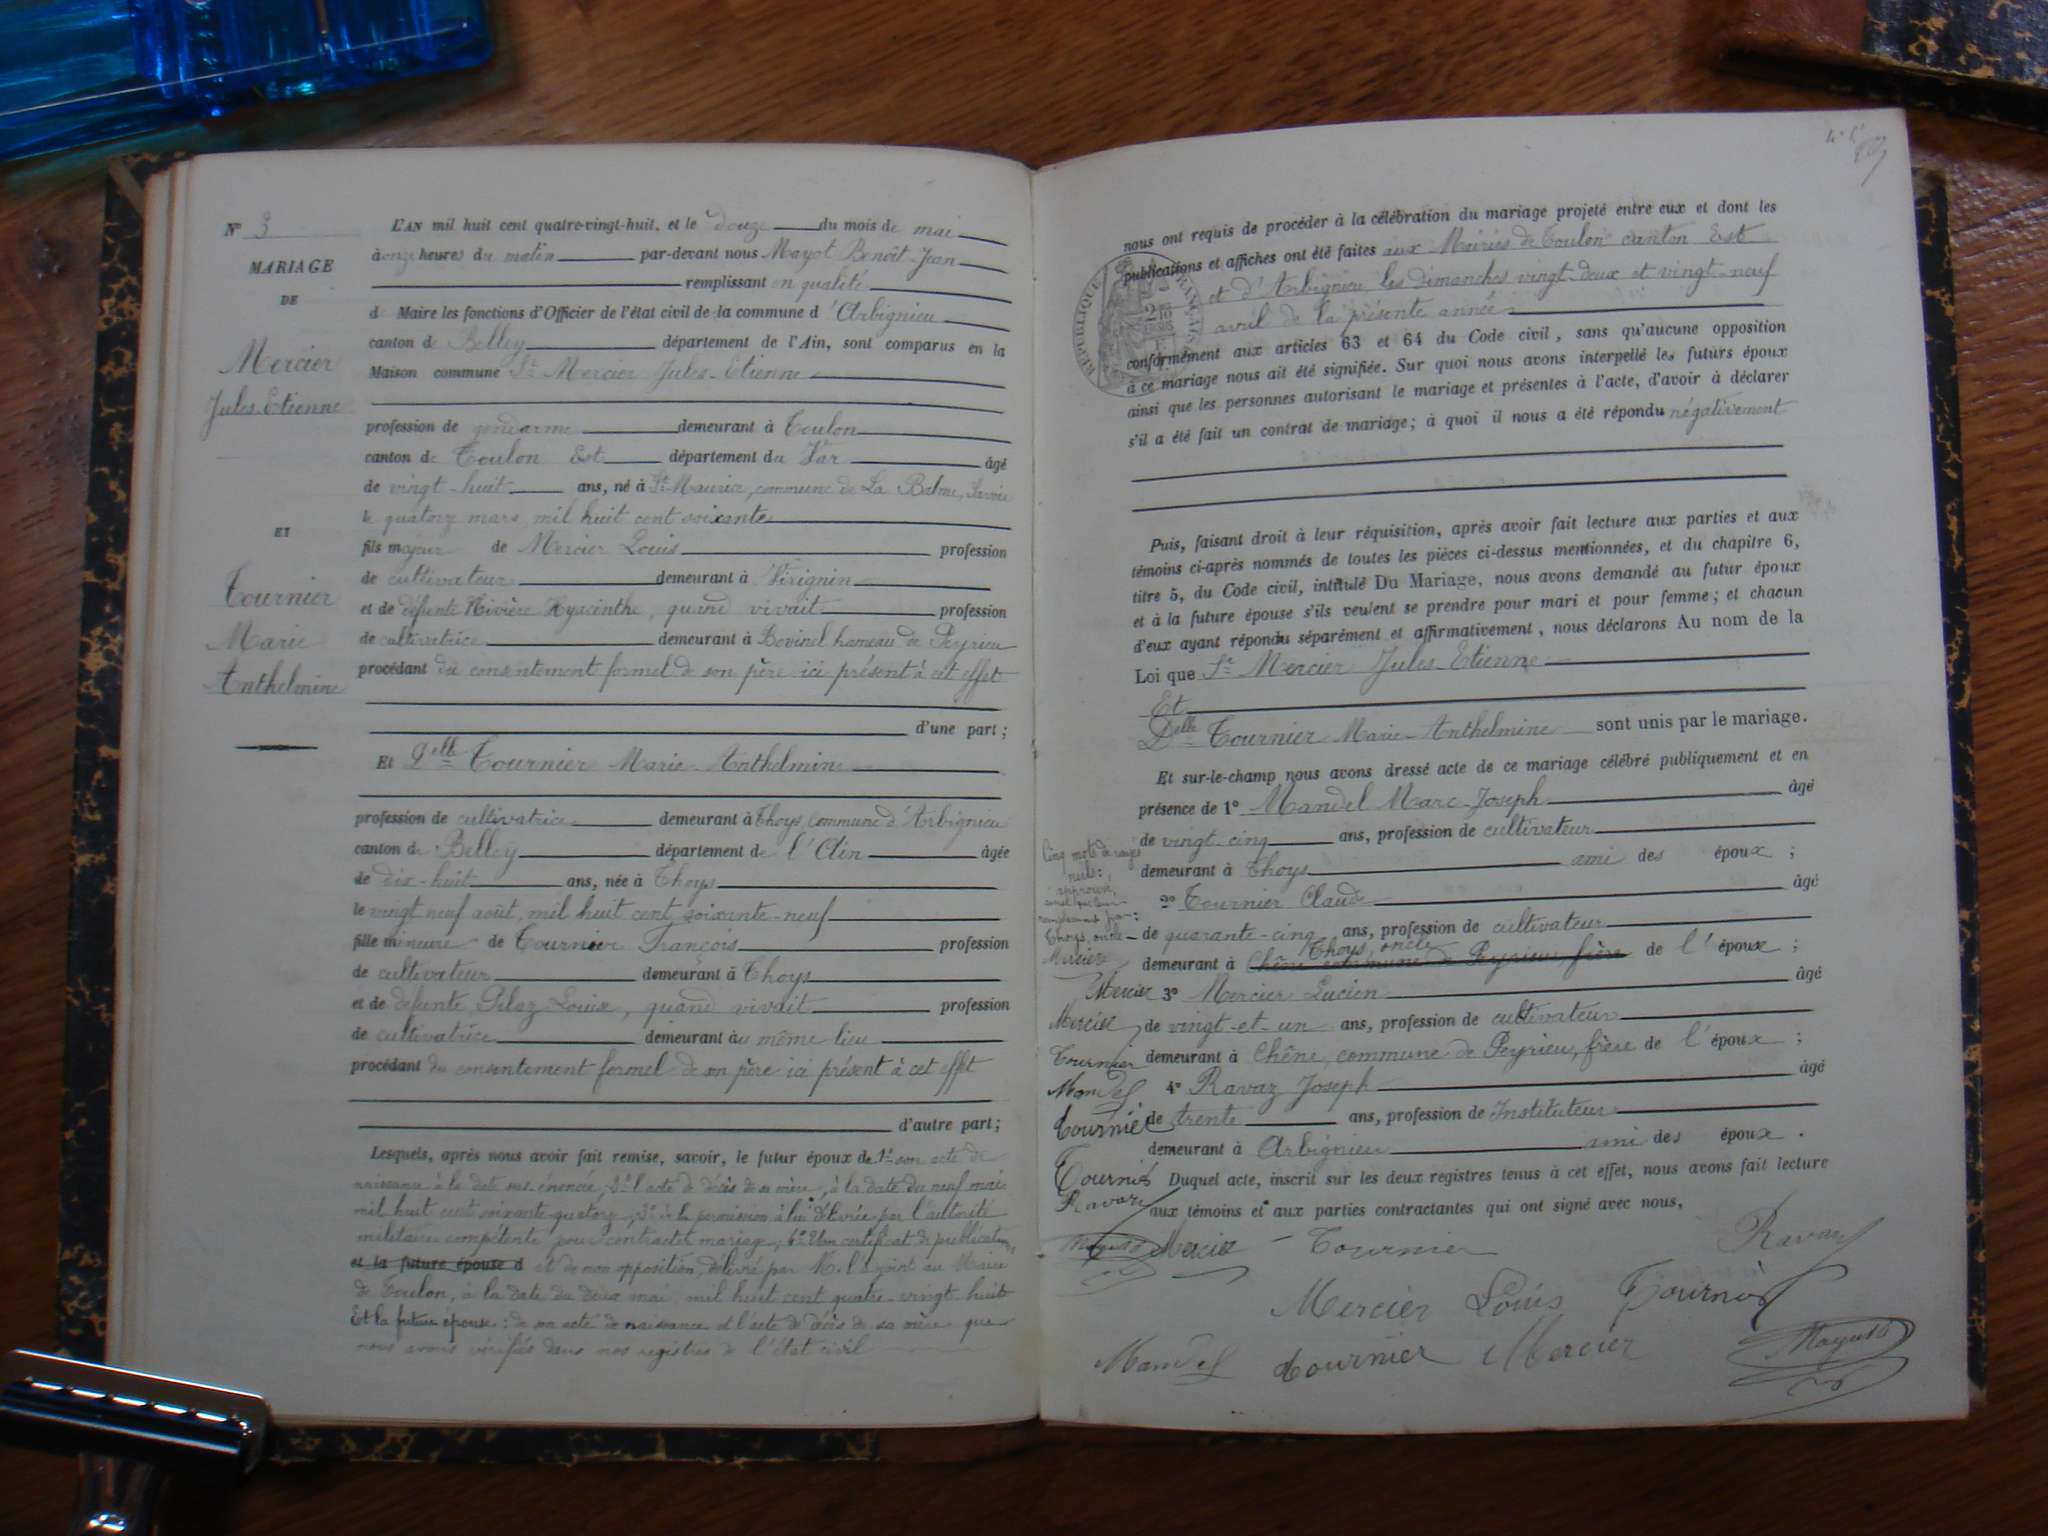 N° 3
MARIAGE
DE
Mercier
Jules-Etienne
ET
Tournier
Marie
Anthelmine
L'AN mil huit cent quatre-vingt-huit, et le douze du mois de mai
à onze heures du matin par-devant nous Mayot Benoît-Jean
remplissant en qualité
de Maire les fonctions d'Officier de l'état civil de la commune d'Arbignieu
canton de Belley département de l'Ain, sont comparus en la
Maison commune Sr Mercier Jules-Etienne
profession de gendarme demeurant à Toulon
canton de Toulon Est département du Var âgé
de vingt-huit ans, né à St Maurice, commune de La Balme, Savoie
le quatorze mars, mil huit cent soixante
fils majeur de Mercier Louis profession
de cultivateur demeurant à Virignin
et de défunte Rivière Hyacinthe, quand vivait profession
de cultivatrice demeurant à Bovinel hameau de Peyrieu
procédant du consentement formel de son père ici présent à cet effet
d'une part;
Et Delle Tournier Marie-Anthelmine
profession de cultivatrice demeurant à Thoys, commune d'Arbignieu
canton de Belley département de l'Ain âgée
de dix-huit ans, née à Thoys
le vingt neuf août, mil huit cent soixante-neuf
fille mineure de Tournier François profession
de cultivateur demeurant à Thoys
et de défunte Pélaz Louise, quand vivait profession
de cultivatrice demeurant au même lieu
procédant du consentement formel de son père ici présent à cet effet
d'autre part;
Lesquels, après nous avoir fait remise, savoir, le futur époux de 1° son acte de
naissance à la date sus-énoncée, 2° l'acte de décès de sa mère, à la date du neuf mai
mil huit cent soixante-quatorze, 3° de la permission à lui délivrée par l'autorité
militaire compétente pour contracter mariage; 4° Et un certificat de publications
et la future épouse d et de non opposition, délivré par M. l'adjoint au Maire
de Toulon, à la date du deux mai, mil huit cent quatre-vingt-huit
Et la future épouse: de son acte de naissance et l'acte de décès de sa mère que
nous avons vérifiés dans nos registres de l'état civil
nous ont requis de procéder à la célébration du mariage projeté entre eux et dont les
publications et affiches ont été faites aux Mairies de Toulon canton Est
et d'Arbignieu, les dimanches vingt-deux et vingt-neuf
avril de la présente année
conformément aux articles 63 et 64 du Code civil, sans qu'aucune opposition
à ce mariage nous ait été signifiée. Sur quoi nous avons interpellé les futurs époux
ainsi que les personnes autorisant le mariage et présentes à l'acte, d'avoir à déclarer
s'il a été fait un contrat de mariage; à quoi il nous a été répondu négativement
Puis, faisant droit à leur réquisition, après avoir fait lecture aux parties et aux
témoins ci-après nommés de toutes les pièces ci-dessus mentionnées, et du chapitre 6,
titre 5, du Code civil, intitulé Du Mariage, nous avons demandé au futur époux
et à la future épouse s'ils veulent se prendre pour mari et pour femme; et chacun
d'eux ayant répondu séparément et affirmativement, nous déclarons Au nom de la
Loi que Sr Mercier Jules-Etienne
Et
Delle Tournier Marie-Anthelmine sont unis par le mariage.
Et sur-le-champ nous avons dressé acte de ce mariage célébré publiquement et en
présence de 1° Mandel Marc-Joseph âgé
de vingt cinq ans, profession de cultivateur
demeurant à Thoys ami des époux;
2° Tournier Claude âgé
de quarante-cinq ans, profession de cultivateur
Thoys, oncle
demeurant à Chêne commune de Peyrieu, frère de l'époux;
3° Mercier Lucien âgé
de vingt-et-un ans, profession de cultivateur
demeurant à Chêne, commune de Peyrieu, frère de l'époux;
4° Ravaz Joseph âgé
de trente ans, profession de Instituteur
demeurant à Arbignieu ami des époux.
Duquel acte, inscrit sur les deux registres tenus à cet effet, nous avons fait lecture
aux témoins et aux parties contractantes qui ont signé avec nous,
Cinq mots rayés
nuls:
Thoys, oncle
Mercier
Mercier
Mercier
Tournier
Mandel
Tournier
Tournier
Ravaz
Mercier Tournier Ravaz
Mercier Louis Tournier
Mandel Tournier Mercier
RÉPUBLIQUE FRANÇAISE